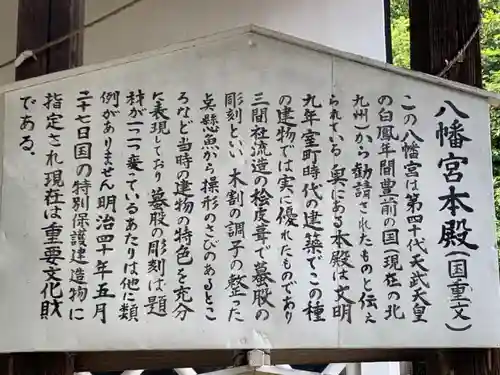 八幡宮本殿(国重文)
この八幡宮は第四十代天武天皇
の白鳳年間豊前の国(現在の北
九州)から勧請されたものと伝え
られている 奥にある本殿は文明
九年室町時代の建築でこの種
の建物では実に優れたものであり
三間社流造の桧皮葺で蟇股の
彫刻といい 木割の調子の整った
点懸魚から操形のさびのあるとこ
ろなど当時の建物の特色を充分
に表現しており 蟇股の彫刻は題
材が一つ一つ異っているあたりは他に類
例がありません 明治四十年五月
二十七日国の特別保護建造物に
指定され現在は重要文化財
である.